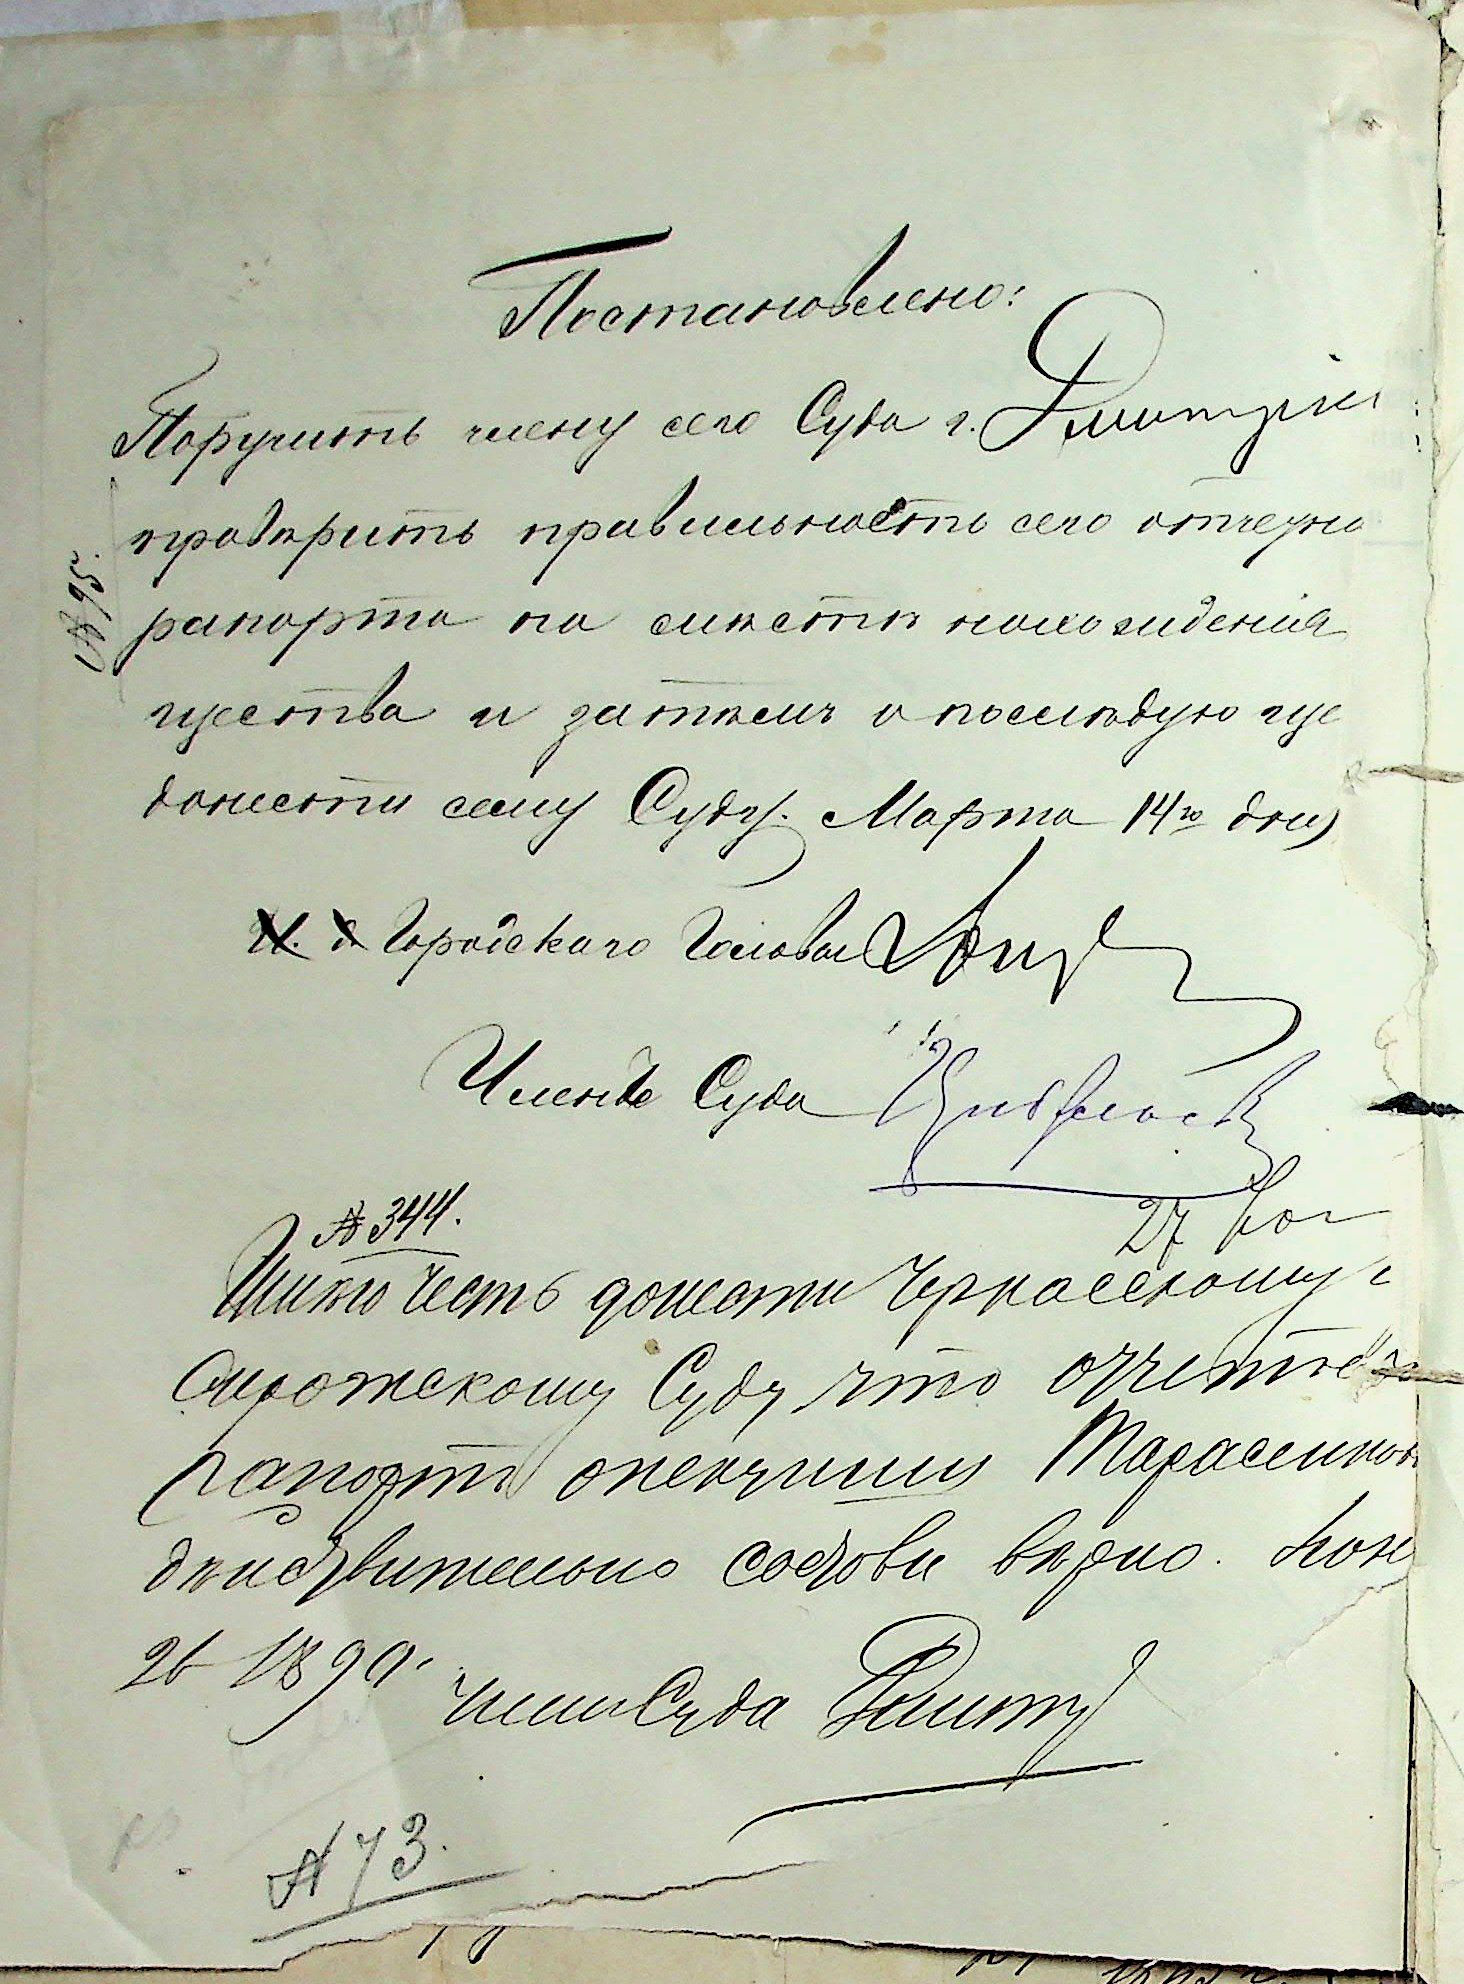 Постановлено:
Поручить члену сего Суда г. Дмитрiи
провѣрить правильность сего отчетно
рапорта на сместѣ нахожденiя
щества и затѣмъ о послѣдующе
донести сему Суду. Марта 14го дня
№ 95.
И. д Городского Головы
Членъ Суда
№ 344.
27
Имѣю честь донести Черкасскому
Сиротскому Суду что отчетно
рапортъ опекунши Тарасенков
дѣйствительно состовл вѣрно.
26 1890.
Член Суда
№ 73.